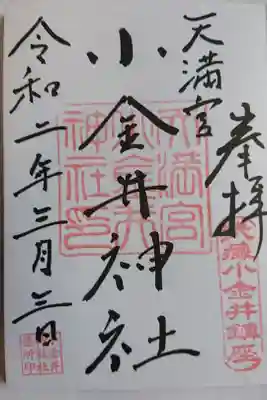 奉拝
天満宮
小金井神社
令和二年三月三日
天満宮
小金井
神社印
武蔵小金井鎮座